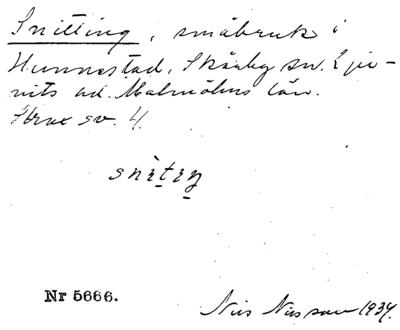 Snitting, småbruk i
Hunnestad, Skårby sn. Lju-
nits hd. Malmöhus län.
Strax sv. 4.
snìtiŋ
Nr 5666.
Nils Nilsson 1934.